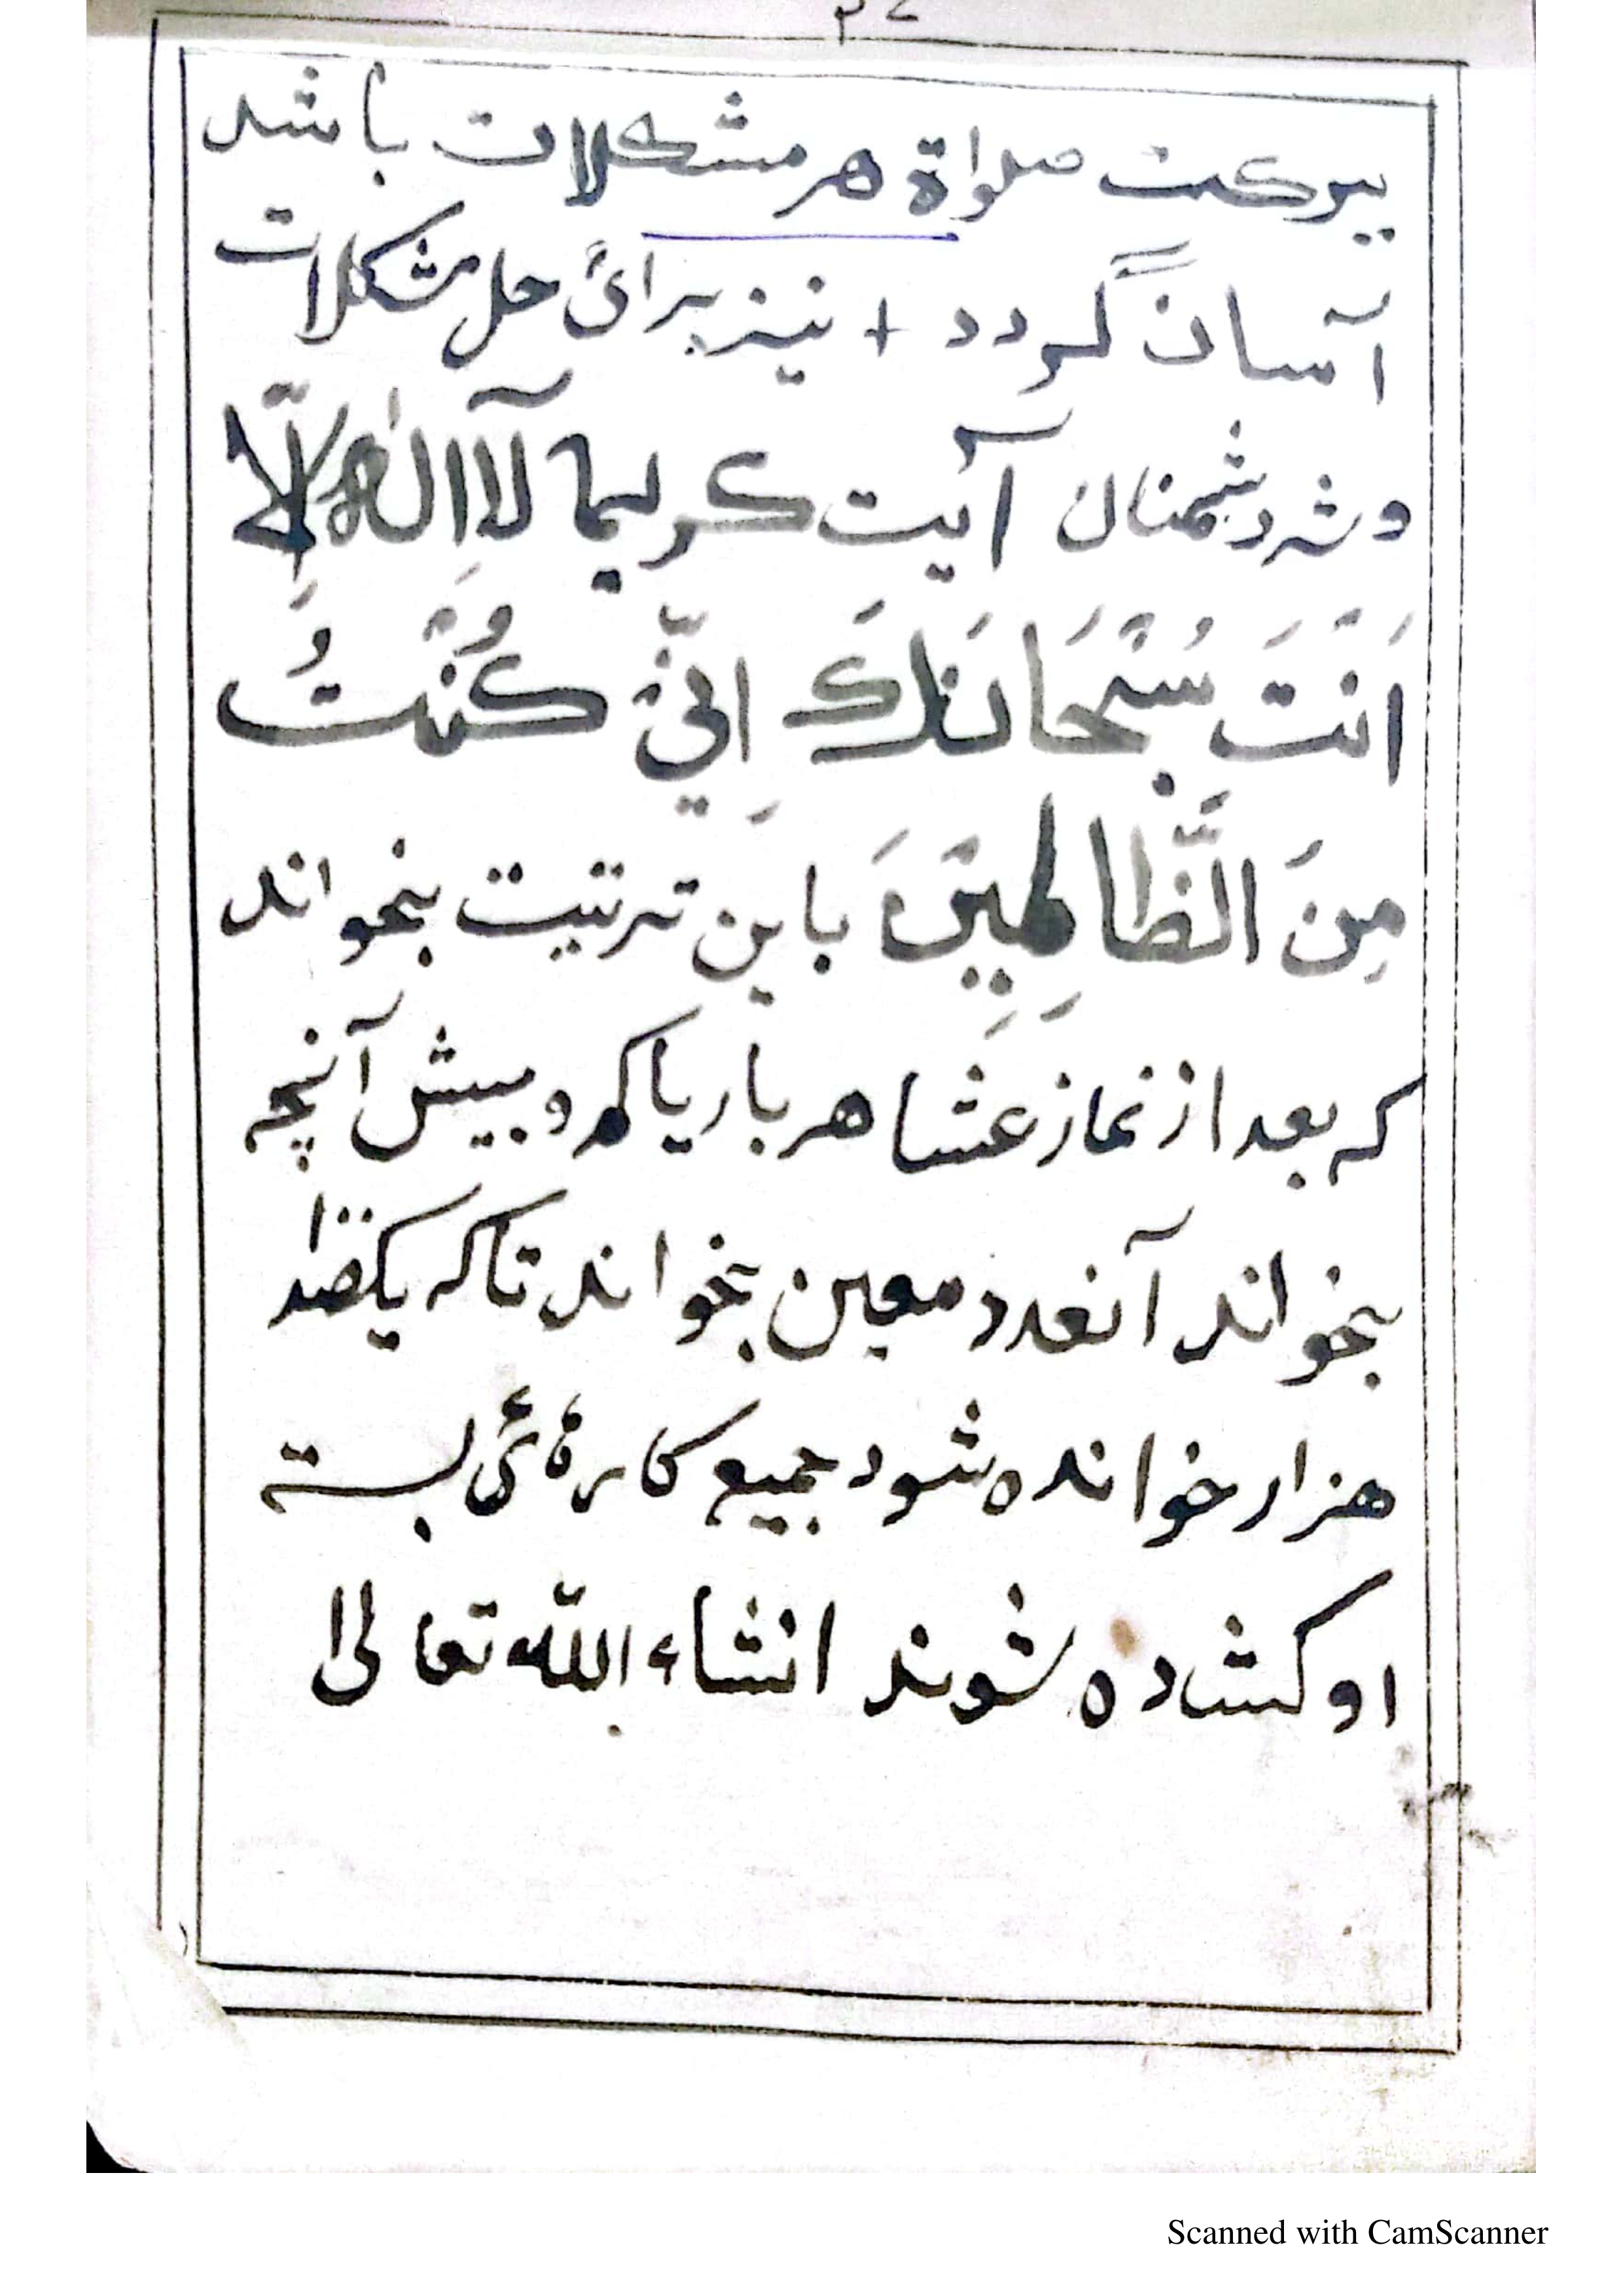 ببرکت صلواة هر مشکلات باشد
آسان گردد + نیز برائ حل مشکلات
و شر دشمنان آیت کریما لَآ اِلٰهَ اِلَّا
اَنْتَ سُبْحَانَكَ اِنِّيْ كُنْتُ
مِنَ الظَّالِمِيْنَ باین ترتیت بخواند
که بعد از نماز عشا هر بار یا کم و بیش آنچه
بخواند آنعدد معین بخواند تا که یکصد
هزار خوانده شود جمیع کارهٔ ئی بسته
او کشده شوند انشاء الله تعالیٰ
Scanned with CamScanner